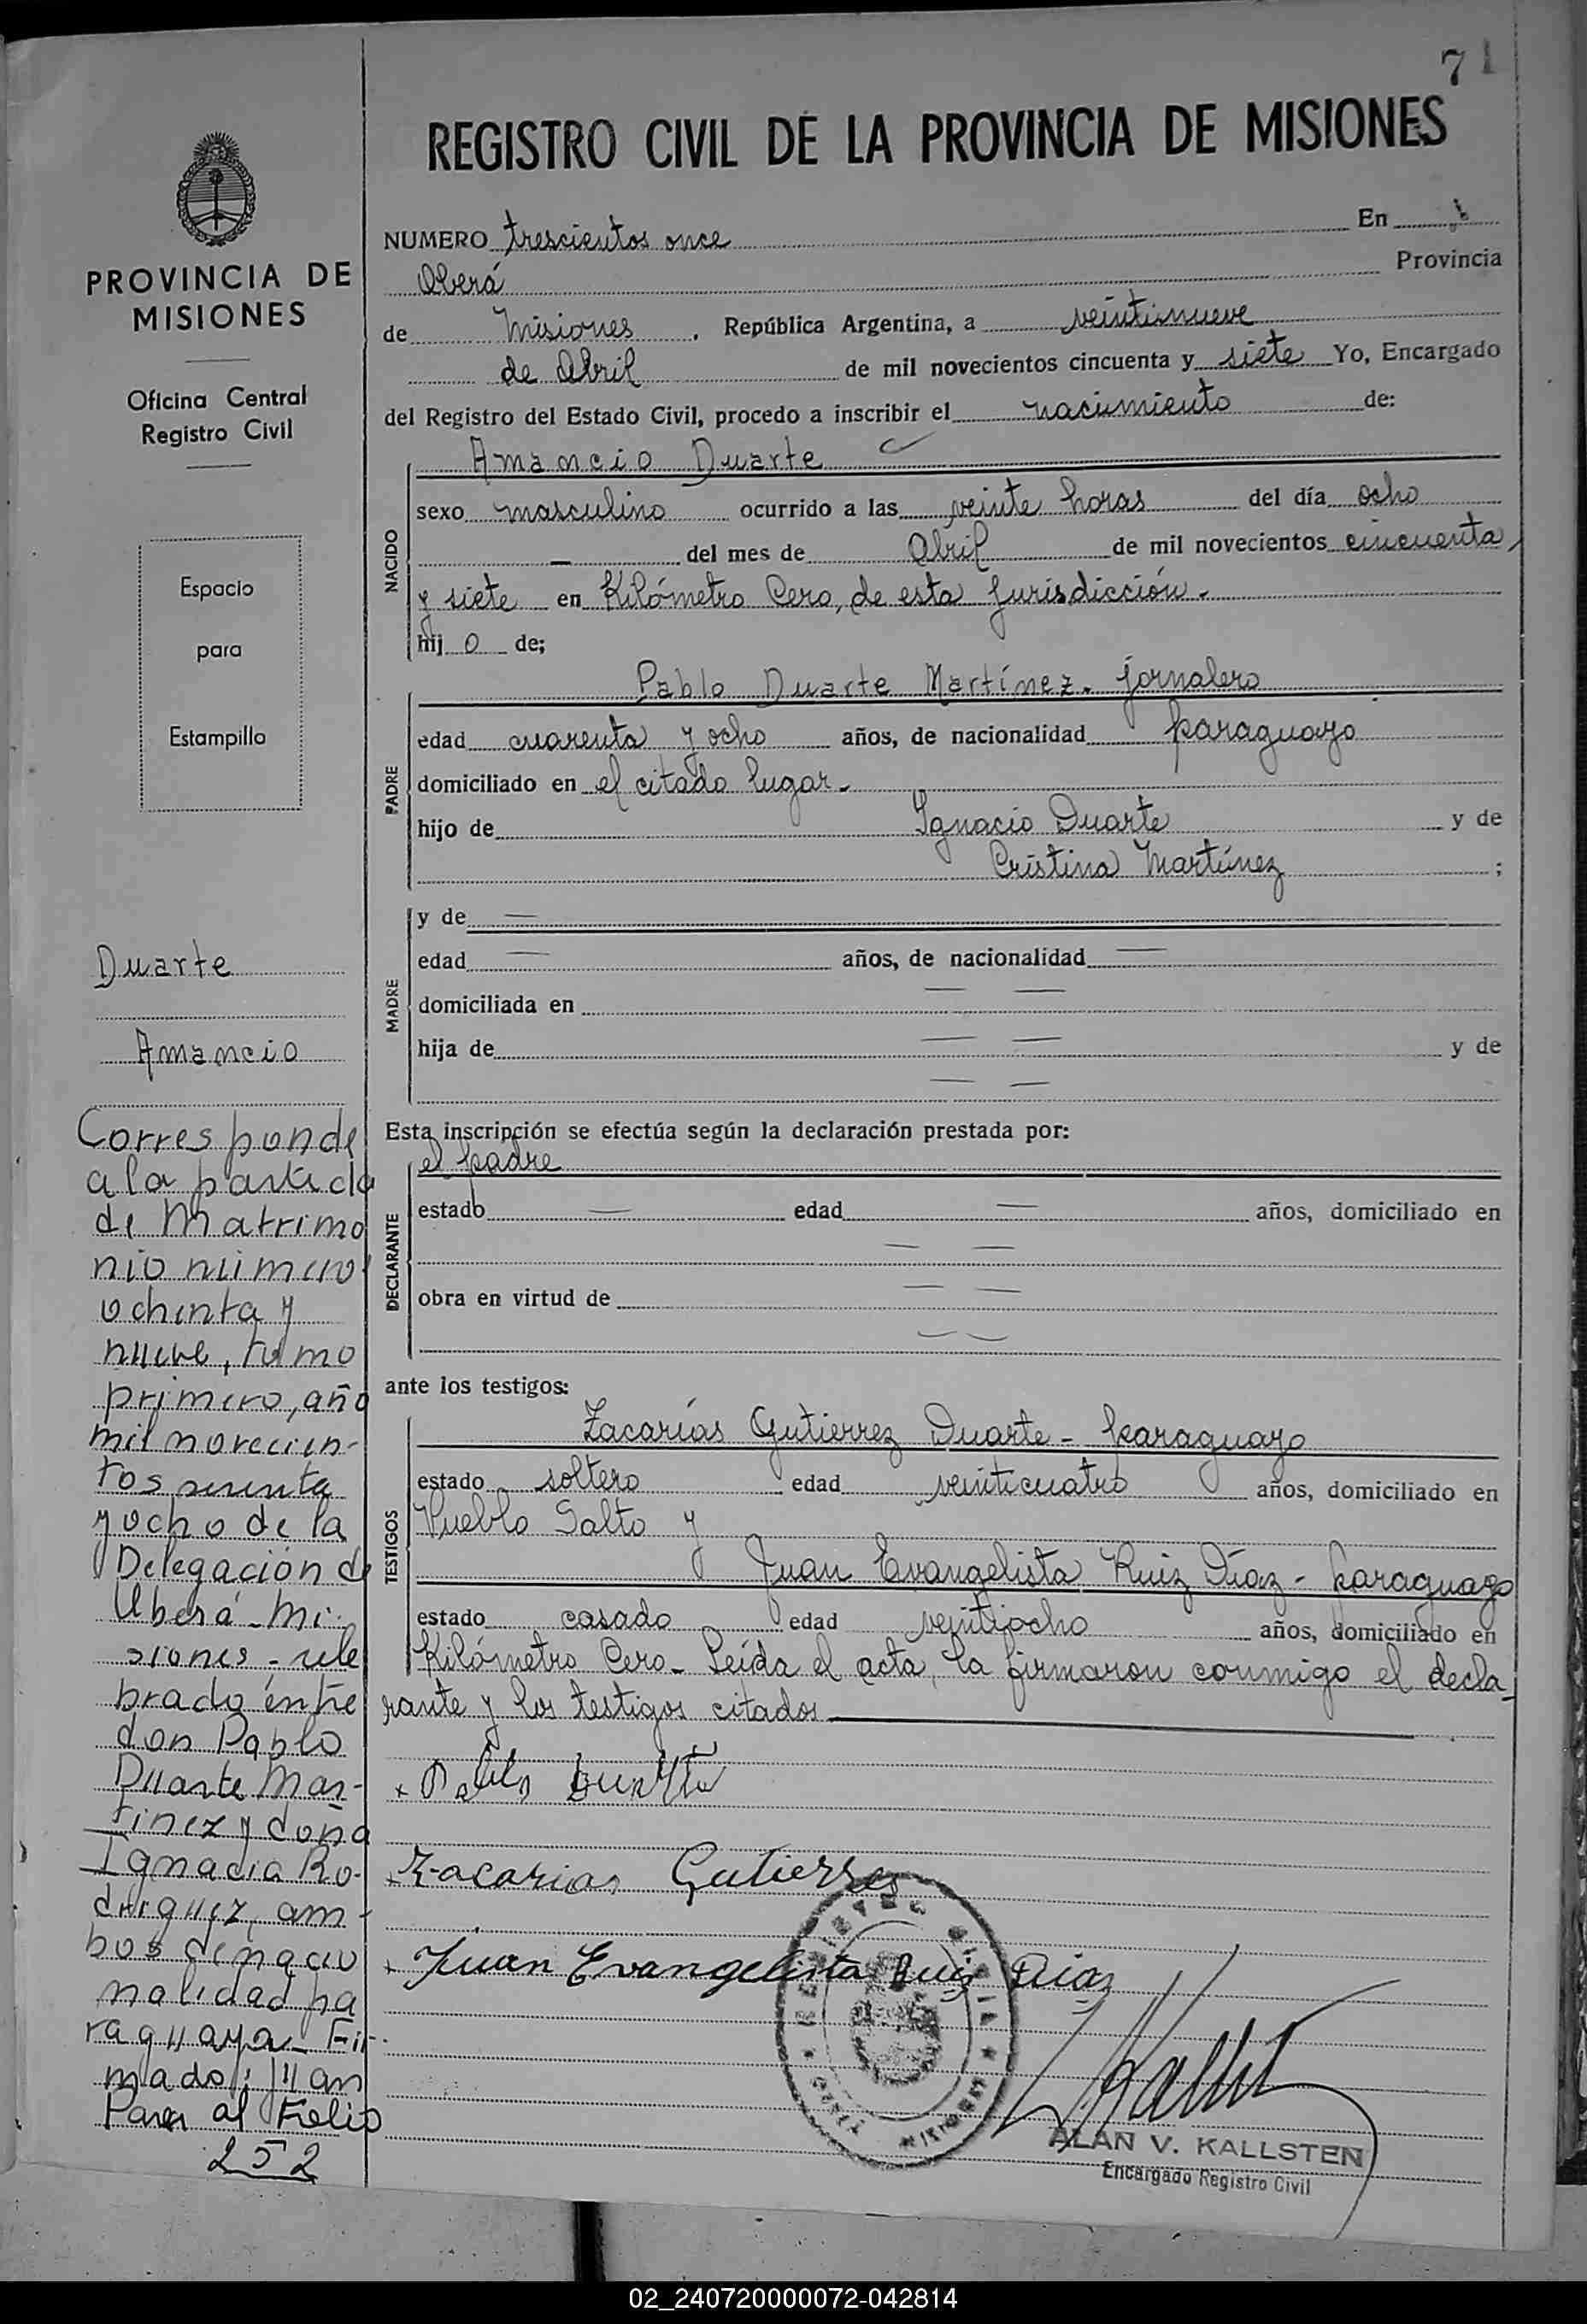 71
REGISTRO CIVIL DE LA PROVINCIA DE MISIONES
PROVINCIA DE
MISIONES
Oficina Central
Registro Civil
Espacio
para
Estampilla
Duarte
Amancio
Corresponde
a la partida
de Matrimo
nio número
ochenta y
nueve, tomo
primero, año
mil novecien-
tos sesenta
y ocho de la
Delegación de
Oberá - Mi-
siones - cele
brado entre
don Pablo
Duarte Mar-
tinez y doña
Ignacia Ro-
driguez, am-
bos de nacio
nalidad pa
raguaya - Fir-
mado: Juan
Pasa al Folio
252
NUMERO trescientos once En
Oberá Provincia
de Misiones, República Argentina, a veintinueve
de Abril de mil novecientos cincuenta y siete Yo, Encargado
del Registro del Estado Civil, procedo a inscribir el nacimiento de:
NACIDO
Amancio Duarte
sexo masculino ocurrido a las veinte horas del día ocho
— del mes de Abril de mil novecientos cincuenta
y siete en Kilómetro Cero, de esta Jurisdicción.-
hij o de;
PADRE
Pablo Duarte Martínez. jornalero
edad cuarenta y ocho años, de nacionalidad paraguayo
domiciliado en el citado lugar.-
hijo de Ignacio Duarte y de
Cristina Martínez ;
MADRE
y de —
edad — años, de nacionalidad —
domiciliada en — —
hija de — — y de
— —
Esta inscripción se efectúa según la declaración prestada por:
DECLARANTE
el padre
estado — edad — años, domiciliado en
— —
obra en virtud de — —
— —
ante los testigos:
TESTIGOS
Zacarías Gutierrez Duarte - paraguayo
estado soltero edad veinticuatro años, domiciliado en
Pueblo Salto y
Juan Evangelista Ruiz Díaz - paraguayo
estado casado edad veintiocho años, domiciliado en
Kilómetro Cero - Leída el acta, la firmaron conmigo el decla-
rante y los testigos citados
x Pablo Duarte
Zacarias Gutierrez
x Juan Evangelista Ruiz Diaz
REGISTRO CIVIL
OBERÁ
MISIONES
Kallsten
ALAN V. KALLSTEN
Encargado Registro Civil
02_240720000072-042814